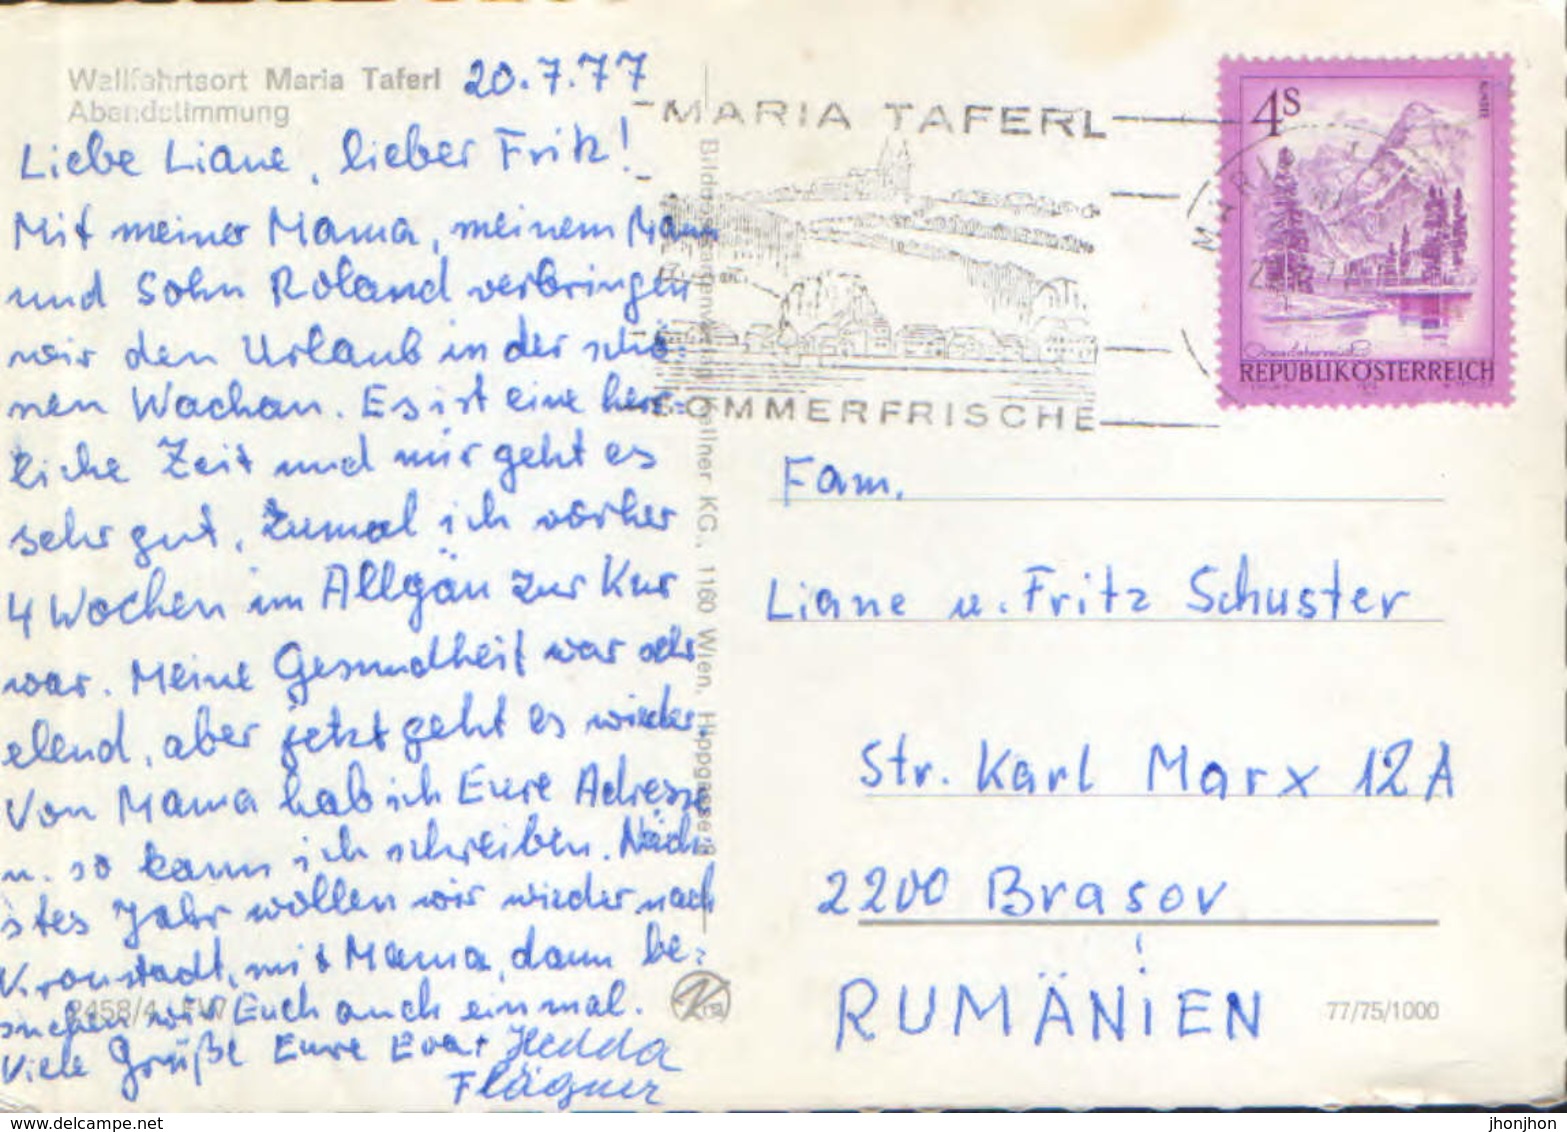 Wallfahrtsort Maria Taferl
Abendstimmung
20.7.77
Liebe Liane, lieber Fritz!
Mit meiner Mama, meinem Mann
und Sohn Roland verbringen
wir den Urlaub in der schö-
nen Wachau. Es ist eine herr-
liche Zeit und mir geht es
sehr gut, zumal ich vorher
4 Wochen im Allgäu zur Kur
war. Meine Gesundheit war sehr
elend, aber jetzt geht es wieder.
Von Mama hab ich Eure Adresse
u. so kann ich schreiben. Näch-
stes Jahr wollen wir wieder nach
Kronstadt, mit Mama, dann be-
suchen wir Euch auch einmal.
Viele Grüße Eure Eva + Hedda
Flägner
2458/4
MARIA TAFERL
SOMMERFRISCHE
4S
REPUBLIK ÖSTERREICH
KG., 1160 Wien,
Fam.
Liane u. Fritz Schuster
Str. Karl Marx 12A
2200 Brasov
RUMÄNIEN
77/75/1000
www.delcampe.net
jhonjhon